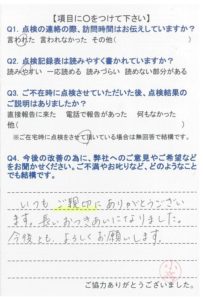 【項目に○をつけて下さい】
Q1. 点検の連絡の際、訪問時間はお伝えしていますか?
言われた 言われなかった その他( )
Q2. 点検記録表は読みやすく書かれていますか?
読みやすい 一応読める 読みづらい 読めない部分がある
Q3. ご不在時に点検させていただいた後、点検結果の
ご説明はありましたか?
直接報告に来た 電話で報告があった 何もなかった
他( )
※ご在宅時に点検をさせて頂いている場合は無回答で結構です。
Q4. 今後の改善の為に、弊社へのご意見やご希望など
をお聞かせください。ご不満やお叱りなど、どのようなこと
でも結構です。
いつもご親切にありがとうござい
ます。長いおつきあいになりました。
今後とも、よろしくお願いします。
ご協力ありがとうございました。